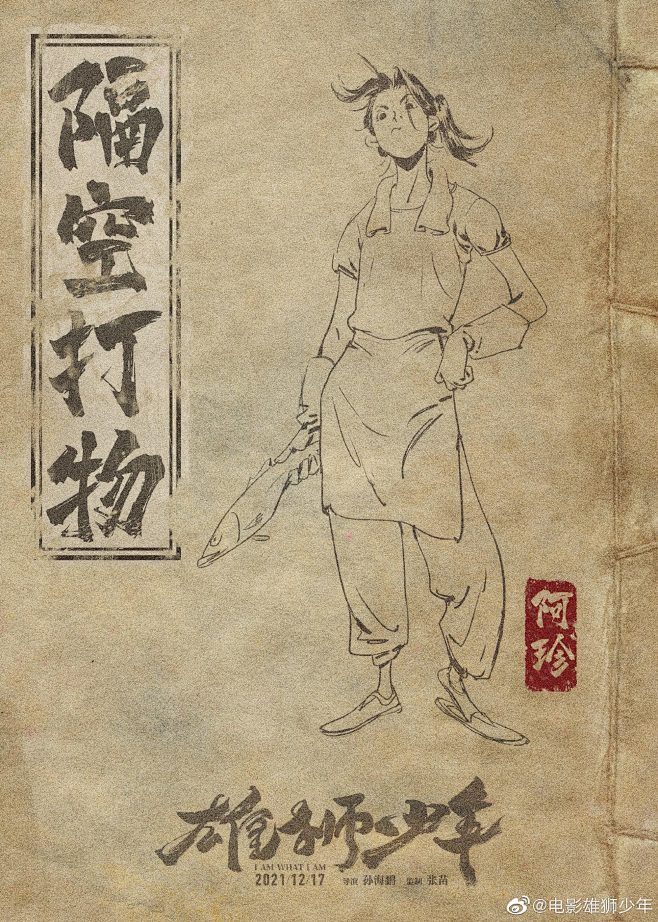 隔空打物
阿珍
雄狮少年
I AM WHAT I AM
2021/12/17 导演 孙海鹏 监制 张苗
@电影雄狮少年